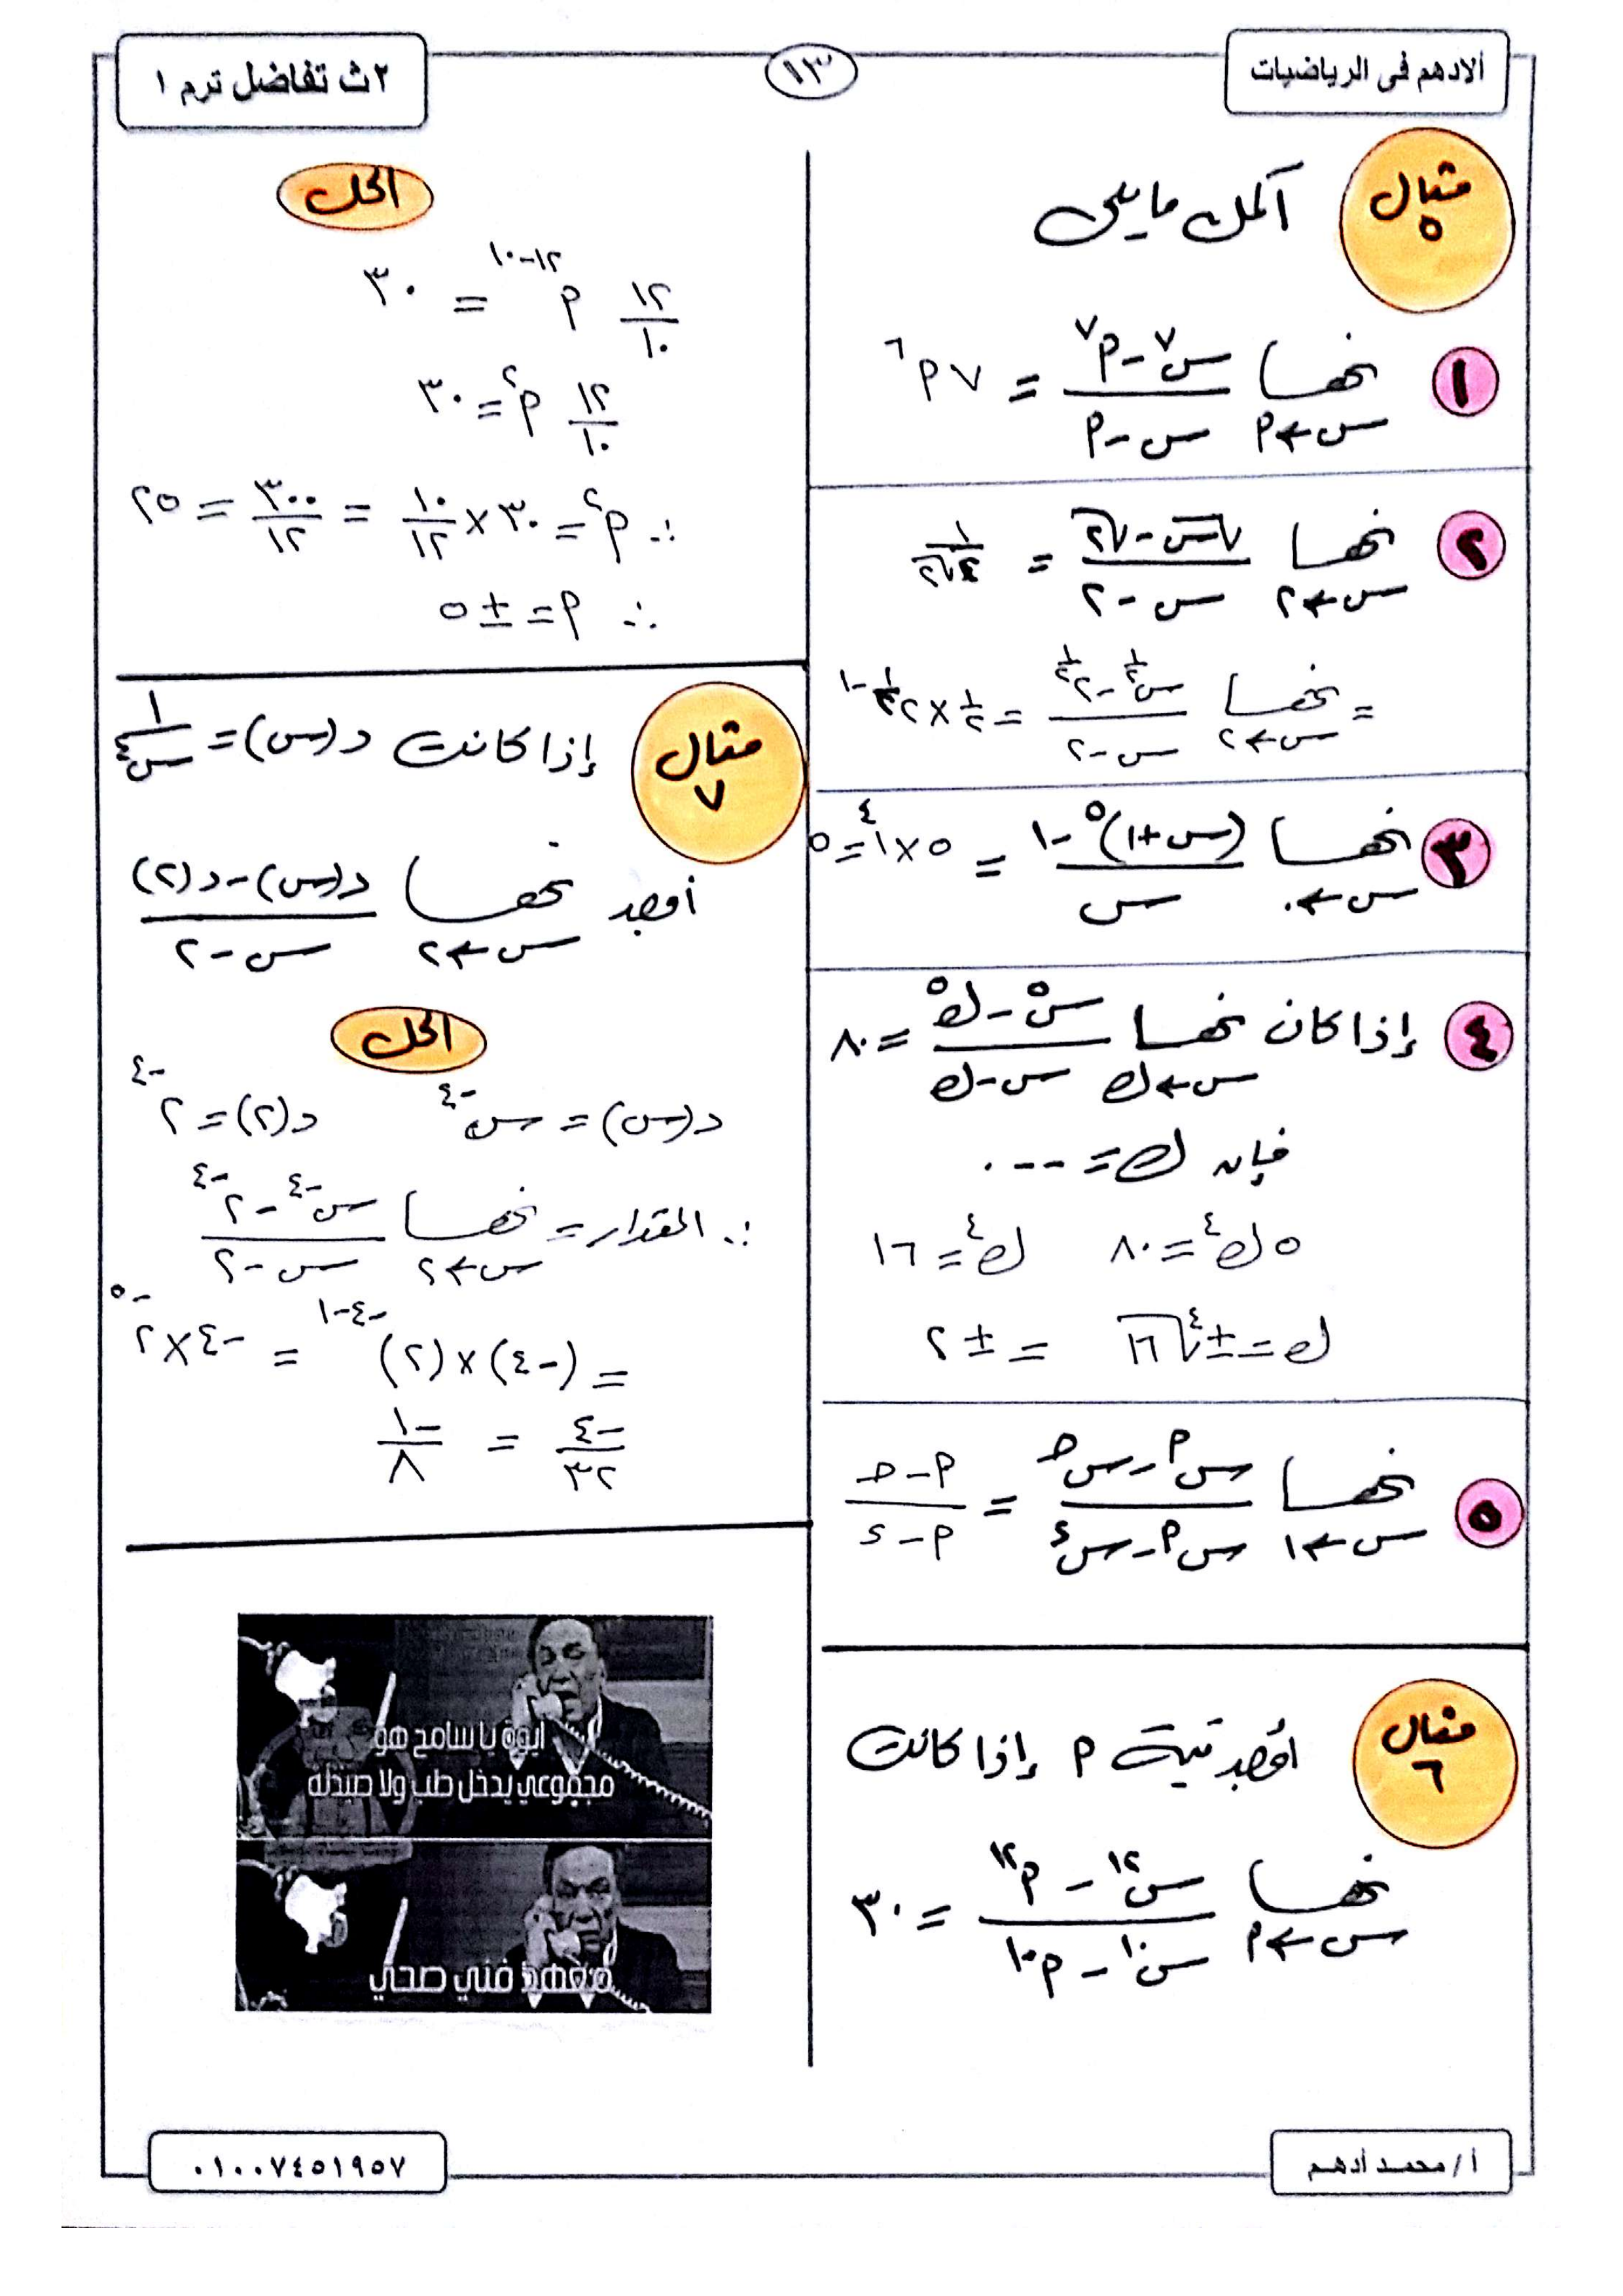 ألادهم فى الرياضيات
١٣
٢ث تفاضل ترم ١
مثال ٥
أكمل ما يلى
١ نهــا س←٢ (س^٧ - م^٧)/(س - م) = ٧م^٦
٢ نهــا س←٢ (√س - √٢)/(س - ٢) = ١/(٢√٢)
= نهــا س←٢ (س^½ - ٢^½)/(س - ٢) = ½ × ٢^(½-١)
٣ نهــا س←٠ ((س+١)^٥ - ١)/س = ٥×١^٤ = ٥
٤ إذا كان نهــا س←ك (س^٥ - ك^٥)/(س - ك) = ٨٠
فإن ك = ....
٥ك^٤ = ٨٠ ك^٤ = ١٦
ك = ±∜١٦ = ±٢
٥ نهــا س←١ (س^م - س^ح)/(س^م - س^ء) = (م - ح)/(م - ء)
مثال ٦
أوجد قيمة م إذا كانت
نهــا س←م (س^١٢ - م^١٢)/(س^١٠ - م^١٠) = ٣٠
الحل
١٢/١٠ م^(١٢-١٠) = ٣٠
١٢/١٠ م^٢ = ٣٠
∴ م^٢ = ٣٠ × ١٠/١٢ = ٣٠٠/١٢ = ٢٥
∴ م = ±٥
مثال ٧
إذا كانت د(س) = ١/س^٤
أوجد نهــا س←٢ (د(س) - د(٢))/(س - ٢)
الحل
د(س) = س^-٤ د(٢) = ٢^-٤
∴ المقدار = نهــا س←٢ (س^-٤ - ٢^-٤)/(س - ٢)
= (-٤) × (٢)^(-٤-١) = -٤ × ٢^-٥
-٤/٣٢ = -١/٨
ايوة يا سامح هو
مجموعي يدخل طب ولا صيدلة
معهد فني صحي
أ/ محمد أدهم
٠١٠٠٧٤٥١٩٥٧